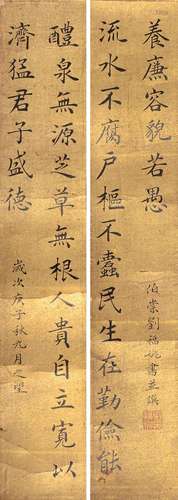 流水不腐戶樞不蠹民生在勤儉能
養廉容貌若愚
伯崇劉福姚書並撰
醴泉無源芝草無根人貴自立寬以
濟猛君子盛德
歲次庚子秋九月之望